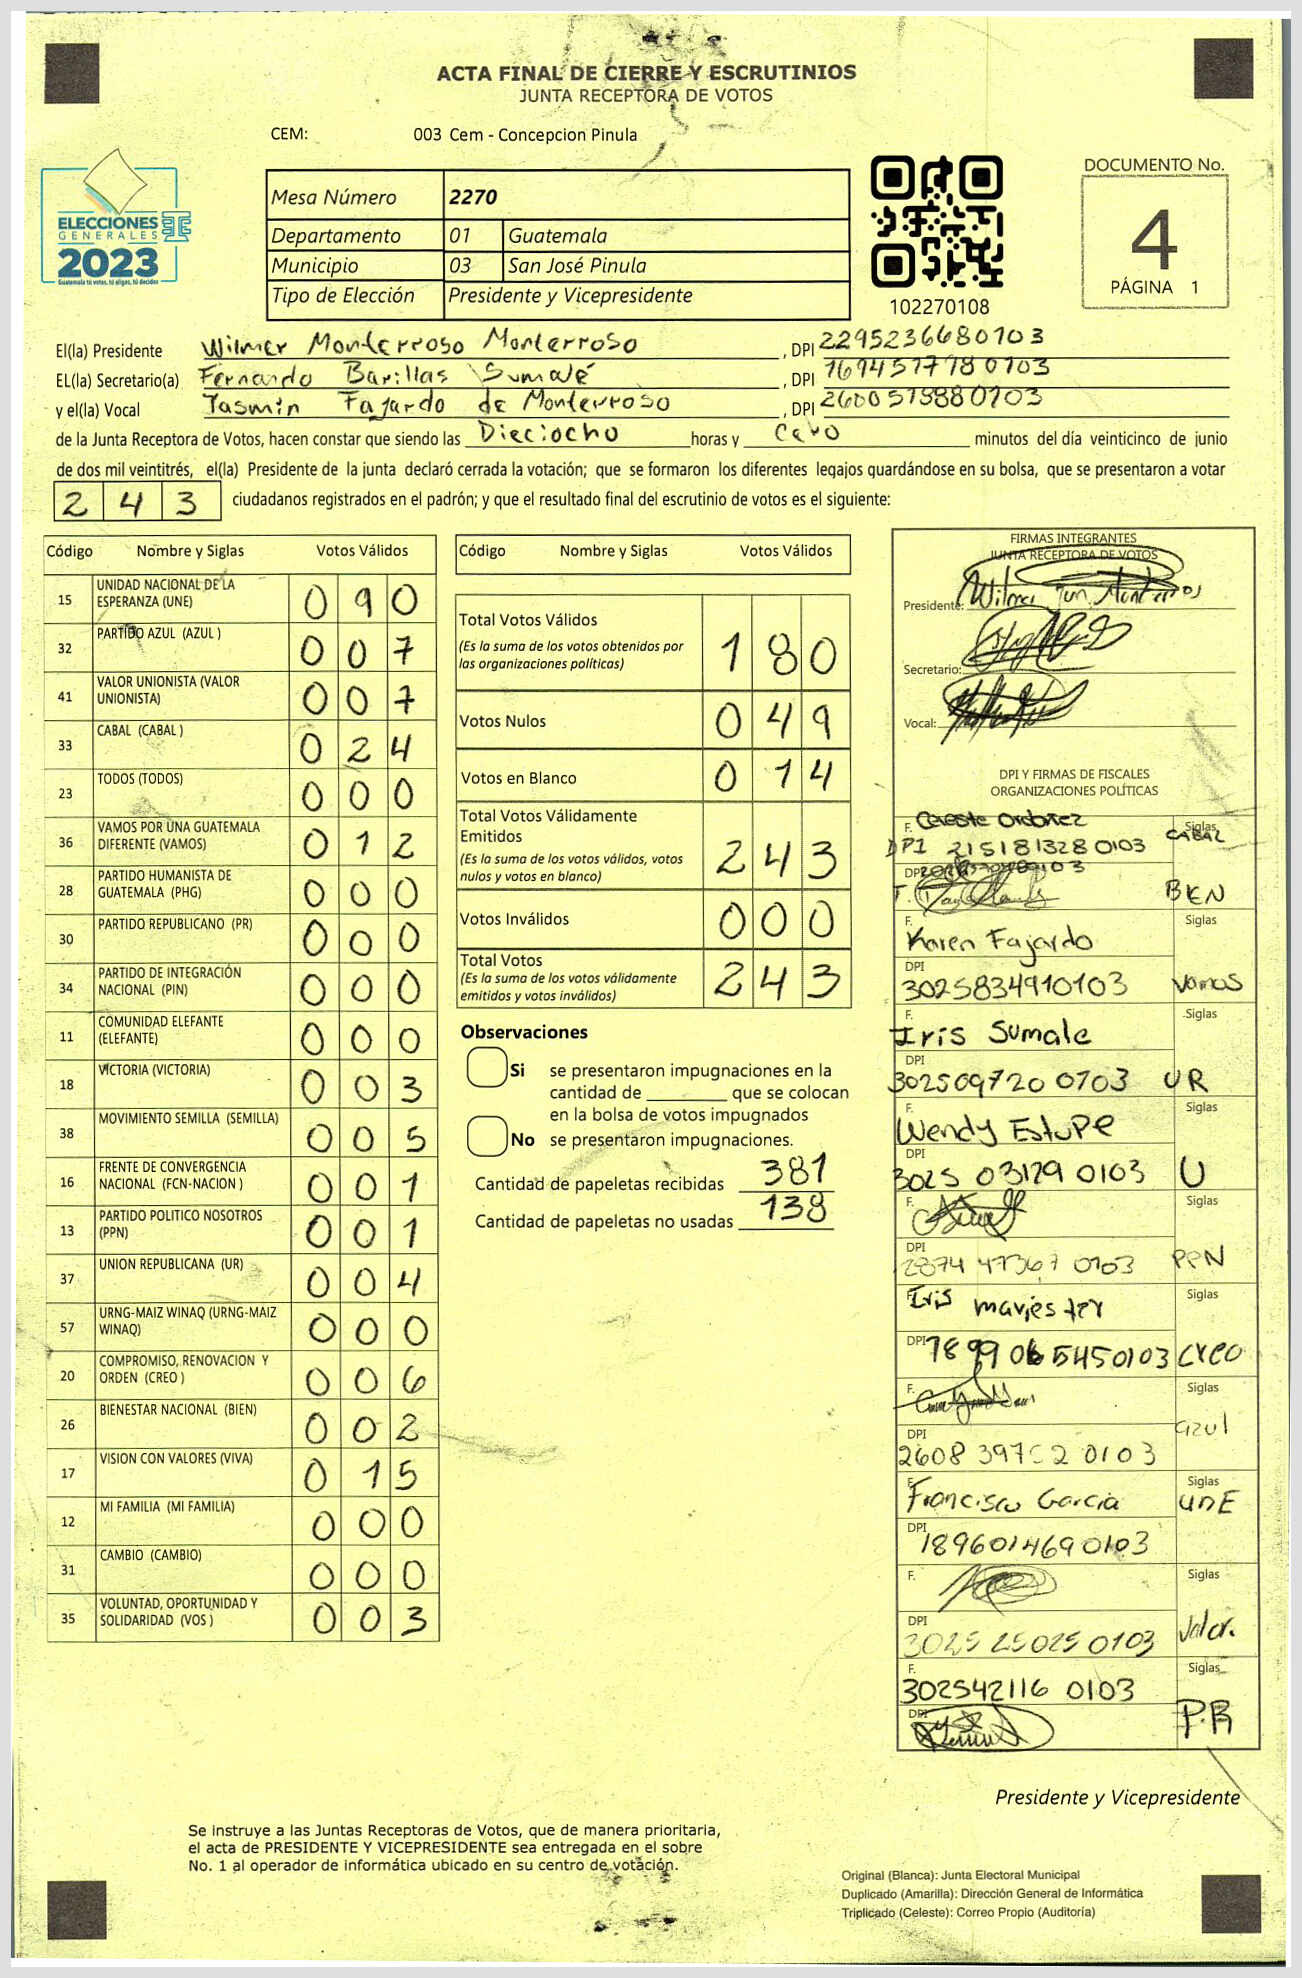 ACTA FINAL DE CIERRE Y ESCRUTINIOS
JUNTA RECEPTORA DE VOTOS
CEM: 003 Cem - Concepcion Pinula
ELECCIONES
GENERALES
2023
Guatemala tú votas, tú eliges, tú decides
Mesa Número 2270
Departamento 01 Guatemala
Municipio 03 San José Pinula
Tipo de Elección Presidente y Vicepresidente
102270108
DOCUMENTO No.
4
PÁGINA 1
El(la) Presidente Wilmer Monterroso Monterroso, DPI 2295236680103
EL(la) Secretario(a) Fernando Barillas Sumalé, DPI 1694517780103
y el(la) Vocal Jasmin Fajardo de Monterroso, DPI
de la Junta Receptora de Votos, hacen constar que siendo las Dieciocho horas y Cero minutos del día veinticinco de junio
de dos mil veintitrés, el(la) Presidente de la junta declaró cerrada la votación; que se formaron los diferentes legajos guardándose en su bolsa, que se presentaron a votar
2 4 3 ciudadanos registrados en el padrón; y que el resultado final del escrutinio de votos es el siguiente:
Código Nombre y Siglas Votos Válidos
15 UNIDAD NACIONAL DE LA
ESPERANZA (UNE) 0 9 0
32 PARTIDO AZUL (AZUL ) 0 0 7
41 VALOR UNIONISTA (VALOR
UNIONISTA) 0 0 7
33 CABAL (CABAL ) 0 2 4
23 TODOS (TODOS) 0 0 0
36 VAMOS POR UNA GUATEMALA
DIFERENTE (VAMOS) 0 1 2
28 PARTIDO HUMANISTA DE
GUATEMALA (PHG) 0 0 0
30 PARTIDO REPUBLICANO (PR) 0 0 0
34 PARTIDO DE INTEGRACIÓN
NACIONAL (PIN) 0 0 0
11 COMUNIDAD ELEFANTE
(ELEFANTE) 0 0 0
18 VICTORIA (VICTORIA) 0 0 3
38 MOVIMIENTO SEMILLA (SEMILLA) 0 0 5
16 FRENTE DE CONVERGENCIA
NACIONAL (FCN-NACION ) 0 0 1
13 PARTIDO POLITICO NOSOTROS
(PPN) 0 0 1
37 UNION REPUBLICANA (UR) 0 0 4
57 URNG-MAIZ WINAQ (URNG-MAIZ
WINAQ) 0 0 0
20 COMPROMISO, RENOVACION Y
ORDEN (CREO ) 0 0 6
26 BIENESTAR NACIONAL (BIEN) 0 0 2
17 VISION CON VALORES (VIVA) 0 1 5
12 MI FAMILIA (MI FAMILIA) 0 0 0
31 CAMBIO (CAMBIO) 0 0 0
35 VOLUNTAD, OPORTUNIDAD Y
SOLIDARIDAD (VOS ) 0 0 3
Código Nombre y Siglas Votos Válidos
Total Votos Válidos
(Es la suma de los votos obtenidos por
las organizaciones políticas) 1 8 0
Votos Nulos 0 4 9
Votos en Blanco 0 1 4
Total Votos Válidamente
Emitidos
(Es la suma de los votos válidos, votos
nulos y votos en blanco) 2 4 3
Votos Inválidos 0 0 0
Total Votos
(Es la suma de los votos válidamente
emitidos y votos inválidos) 2 4 3
Observaciones
Si se presentaron impugnaciones en la
cantidad de ________ que se colocan
en la bolsa de votos impugnados
No se presentaron impugnaciones.
Cantidad de papeletas recibidas 381
Cantidad de papeletas no usadas 138
FIRMAS INTEGRANTES
JUNTA RECEPTORA DE VOTOS
Presidente: Wilmer
Secretario:
Vocal:
DPI Y FIRMAS DE FISCALES
ORGANIZACIONES POLÍTICAS
F. Celeste Ordoñez Siglas
DPI 215181328 0103 CABAL
DPI
F. BIEN
F. Karen Fajardo Siglas
DPI
3025834910103 Vamos
F. Iris Sumale Siglas
DPI
302509720 0103 UR
F. Wendy Estupe Siglas
DPI
3025 03129 0103 U
F. Siglas
DPI
2874 47367 0103 PPN
F. Iris Siglas
DPI 1899 06 5450103 CREO
F. Siglas
DPI azul
2608 0103
F. Francisco Garcia Siglas
DPI UNE
1896014690103
F. Siglas
DPI
3025 25025 0103 Valor.
F. Siglas
302542116 0103
DPI P.R
Presidente y Vicepresidente
Se instruye a las Juntas Receptoras de Votos, que de manera prioritaria,
el acta de PRESIDENTE Y VICEPRESIDENTE sea entregada en el sobre
No. 1 al operador de informática ubicado en su centro de votación.
Original (Blanca): Junta Electoral Municipal
Duplicado (Amarilla): Dirección General de Informática
Triplicado (Celeste): Correo Propio (Auditoría)